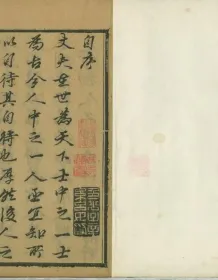 自序
丈夫生世為天下士中之一士
為古今人中之一人亟宜知所
以自待其自待也厚然後人之